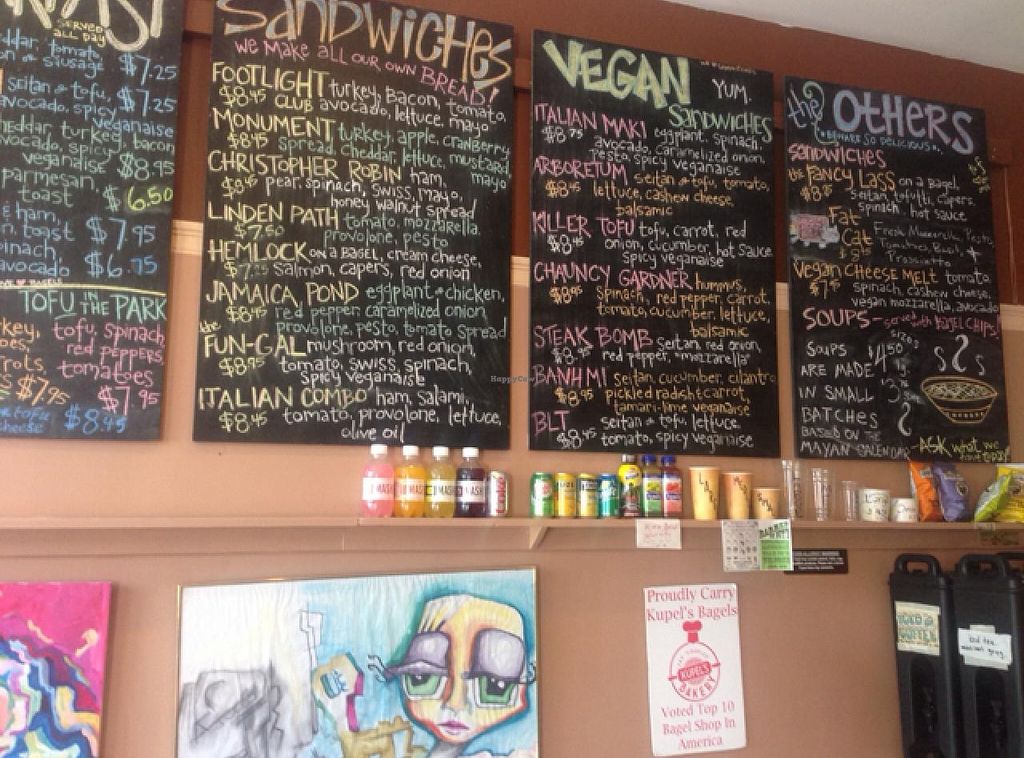 SERVED
ALL DAY
cheddar, tomato,
sausage $7.25
seitan or tofu, $7.25
avocado, spicy
veganaise
cheddar, turkey, bacon
avocado, spicy
veganaise $8.95
parmesan,
toast $6.50
ham,
toast $7.95
avocado $6.75
TOFU IN THE PARK
tofu, spinach,
red peppers,
tomatoes
$7.95
$7.95
cheese $8.45
SANDWICHES
WE MAKE ALL OUR OWN BREAD!
FOOTLIGHT turkey, bacon, tomato,
$8.45 CLUB avocado, lettuce, mayo
MONUMENT turkey, apple, cranberry
$8.45 spread, cheddar, lettuce, mustard,
mayo
CHRISTOPHER ROBIN ham,
$8.45 pear, spinach, swiss, mayo,
honey walnut spread
LINDEN PATH tomato, mozzarella,
$7.50 provolone, pesto
HEMLOCK ON A BAGEL, cream cheese,
$7.25 salmon, capers, red onion
JAMAICA POND eggplant or chicken,
$8.45 red pepper, caramelized onion,
provolone, pesto, tomato spread
the
FUN-GAL mushroom, red onion,
$8.45 tomato, swiss, spinach,
spicy veganaise
ITALIAN COMBO ham, salami,
$8.45 tomato, provolone, lettuce,
olive oil
VEGAN
YUM.
SANDWICHES
ITALIAN MAKI eggplant, spinach,
$8.75 avocado, caramelized onion,
pesto, spicy veganaise
ARBORETUM seitan or tofu, tomato,
$8.45 lettuce, cashew cheese,
balsamic
KILLER TOFU tofu, carrot, red
$8.45 onion, cucumber, hot sauce
spicy veganaise
CHAUNCY GARDNER hummus,
$8.45 spinach, red pepper, carrot,
tomato, cucumber, lettuce,
balsamic
STEAK BOMB seitan, red onion,
$8.45 red pepper, "mozzarella"
BANH MI seitan, cucumber, cilantro
$8.45 pickled radish+carrot,
tamari-lime veganaise
BLT seitan or tofu, lettuce,
$8.45 tomato, spicy veganaise
the OTHERS
BEWARE SO DELICIOUS
SANDWICHES
the FANCY LASS on a Bagel,
seitan, tofutti, capers,
spinach, hot sauce
Fat
Cat Fresh Mozzarella, Pesto,
Tomatoes, Basil, +
Prosciutto
VEGAN CHEESE MELT tomato,
$7.45 spinach, cashew cheese,
vegan mozzarella, avocado
SOUPS - served with BAGEL CHIPS!
SOUPS
ARE MADE
IN SMALL
BATCHES
BASED ON THE
MAYAN CALENDAR
SIZES
$4.50
ASK what we
have today!
HappyCow
MASH
MASH
MASH
MASH
Proudly Carry
Kupel's Bagels
KUPEL'S
BAKERY
Voted Top 10
Bagel Shop In
America
ICED
COFFEE